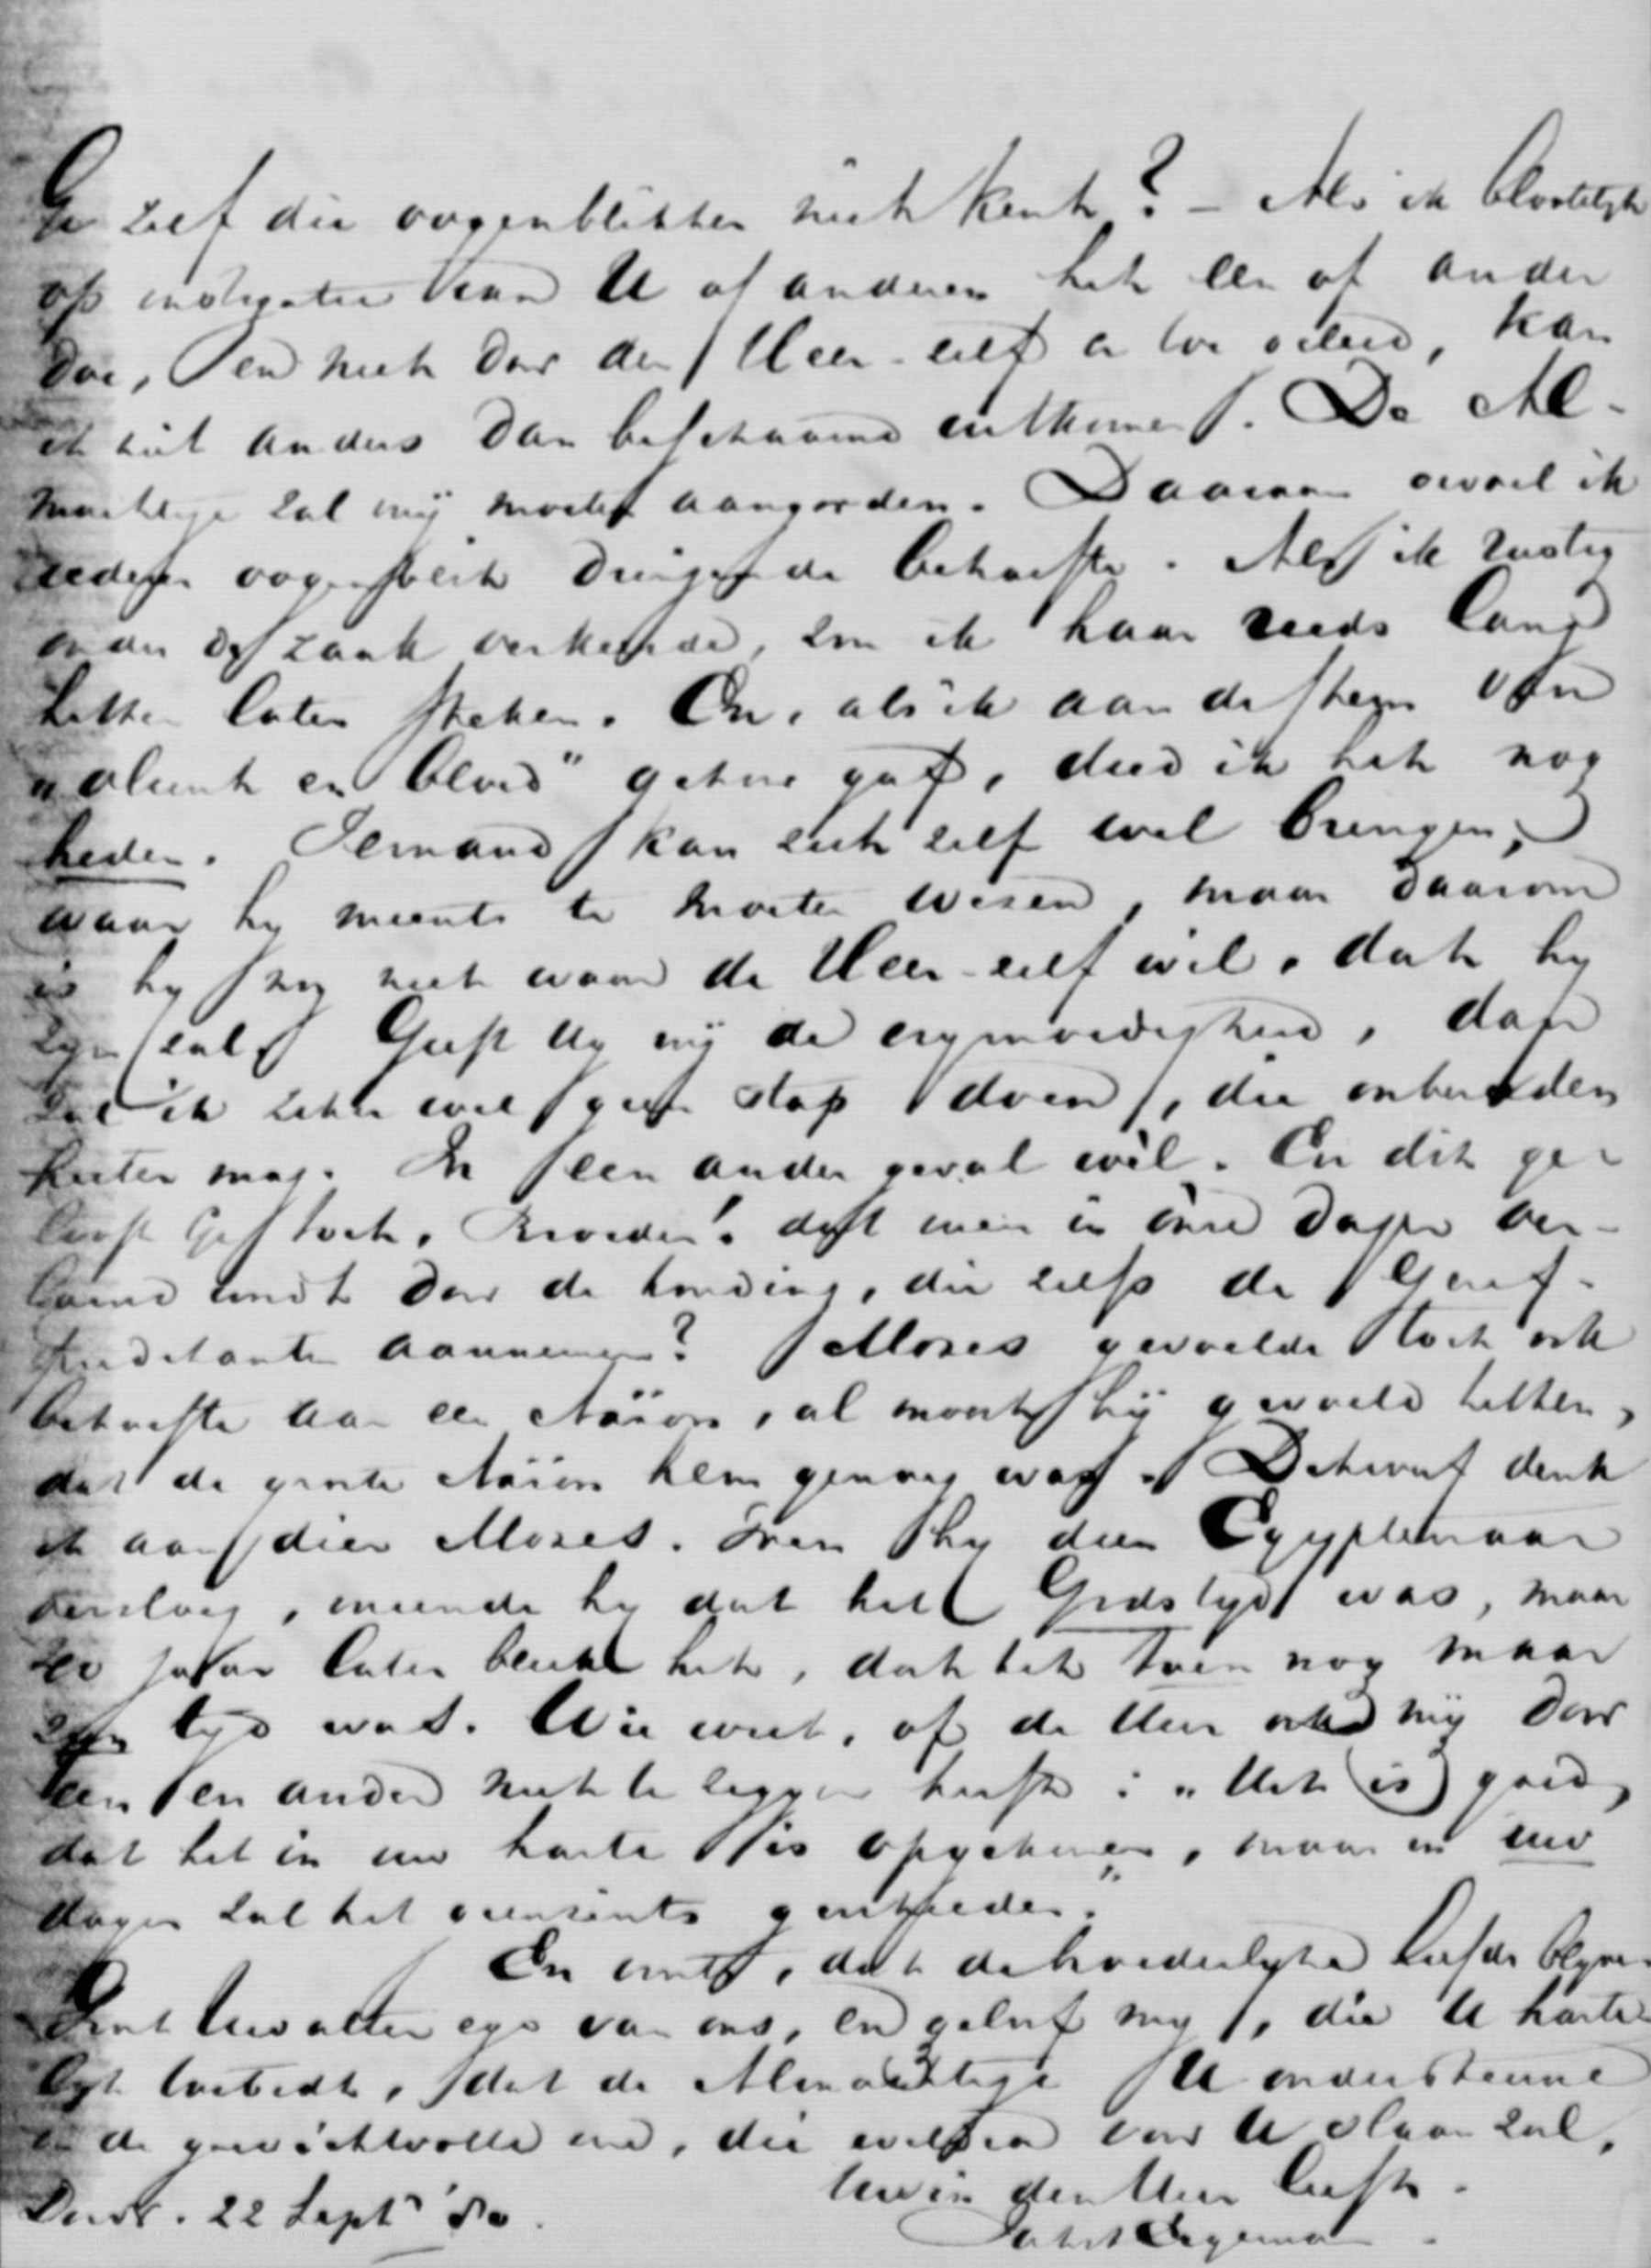 Ge zelf die oogenblikken niet kent? - Als ik blootelijk
op instigatie van U of anderen het een of ander
doe, en niet door den Heer-zelf er toe geleid, kan
ik niet anders dan beschaamd uitkomen. De Al-
machtige zal mij moeten aangorden. Daaraan gevoel ik
iederen oogenblik dringende behoefte. Als ik rustig
onder de zaak verkeerde, zou ik haar reeds lang
hebben laten steken. En, als ik aan de stem van
"vleesch en bloed" gehoor gaf, deed ik het nog
heden. Iemand kan zich zelf wel brengen,
waar hij meent te moeten wezen, maar daarom
is hij nog niet waar de Heer-zelf wil, dat hij
zijn zal. Geeft Hij mij de vrijmoedigheid, dan
zal ik zeker wel geen stap doen, die onberaden
heeten mag. In een ander geval wèl. En dit ge-
looft Ge toch, Broeder! dat men in onze dagen ver-
lamd wordt door de houding, die zelfs de Geref.
predikanten aannemen? Moses gevoelde toch ook
behoefte aan een Aäron, al moest hij gevoeld hebben,
dat de groote Aäron hem genoeg was. Dikwerf denk
ik aan dien Moses. Toen hij dien Egyptenaar
versloeg, meende hij dat het Gods tijd was, maar
40 jaar later bleek het, dat het toen nog maar
zijn tijd was. Wie weet, of de Heer ook mij door
een en ander niet te zeggen heeft: "Het is goed,
dat het in uw harte is opgekomen, maar in uw
dagen zal het geenszins geschieden."
En nu, dat de broederlyke liefde blyve.
Groet Uw allen van ons, en geloof mij, die U harte-
lijk toebidt, dat de Almachtige U ondersteune
in de gewichtvolle ure, die weldra voor U slaan zal,
Uw in den Heer liefh.
Dordt. 22 Sept. '80.